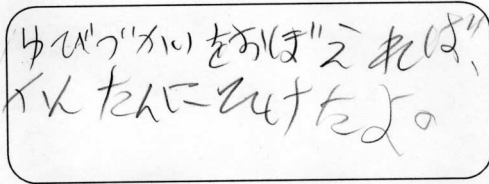 ゆびづかいをおぼえれば、
かんたんにひけたよ。